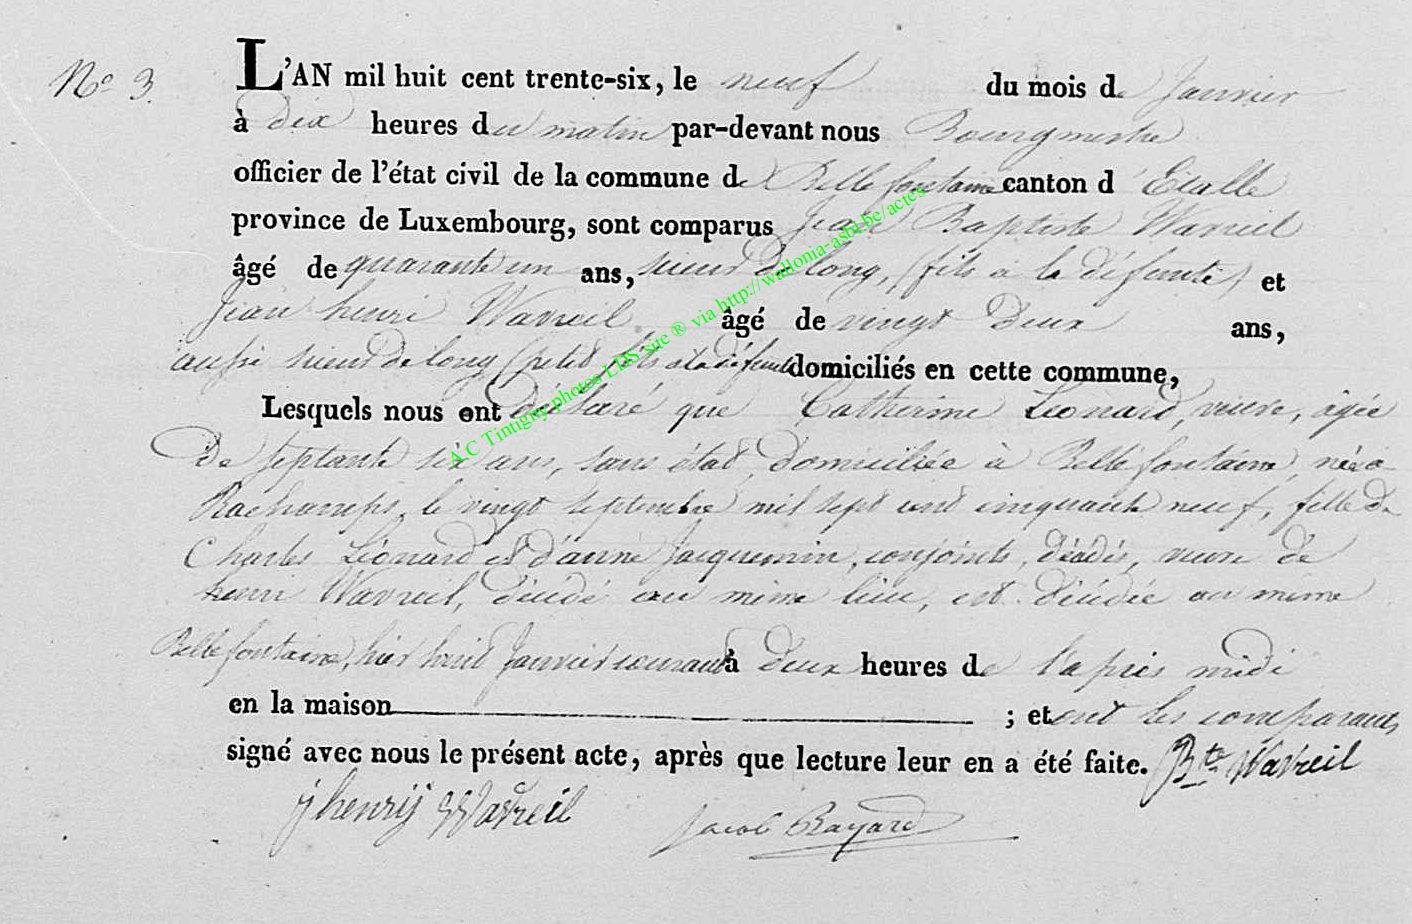 Nº 3.
L'AN mil huit cent trente-six, le neuf du mois de Janvier
à dix heures du matin par-devant nous Bourgmestre
officier de l'état civil de la commune de Bellefontaine canton d'Etalle
province de Luxembourg, sont comparus Jean Baptiste Wavreil
âgé de quarante un ans, sieur de long, (fils à la défunte) et
Jean henri Wavreil, âgé de vingt deux ans,
aussi sieur de long (petit fils à la défunte) domiciliés en cette commune,
Lesquels nous ont déclaré que Catherine Léonard, veuve, âgée
de septante six ans, sans état, domiciliée à Bellefontaine, née à
Rachamps, le vingt septembre mil sept cent cinquante neuf, fille de
Charles Léonard et d'anne Jacquemin, conjoints, décédés, veuve de
henri Wavreil, décédé au même lieu, est décédée au même
Bellefontaine, hier huit Janvier courant à deux heures de l'après midi
en la maison ; et ont les comparants
signé avec nous le présent acte, après que lecture leur en a été faite. Bte Wavreil
j henrÿ Wavreil Jacob Bayard
A.C Tintigny photos LDS sue ® via http://wallonia-asbl.be/actes